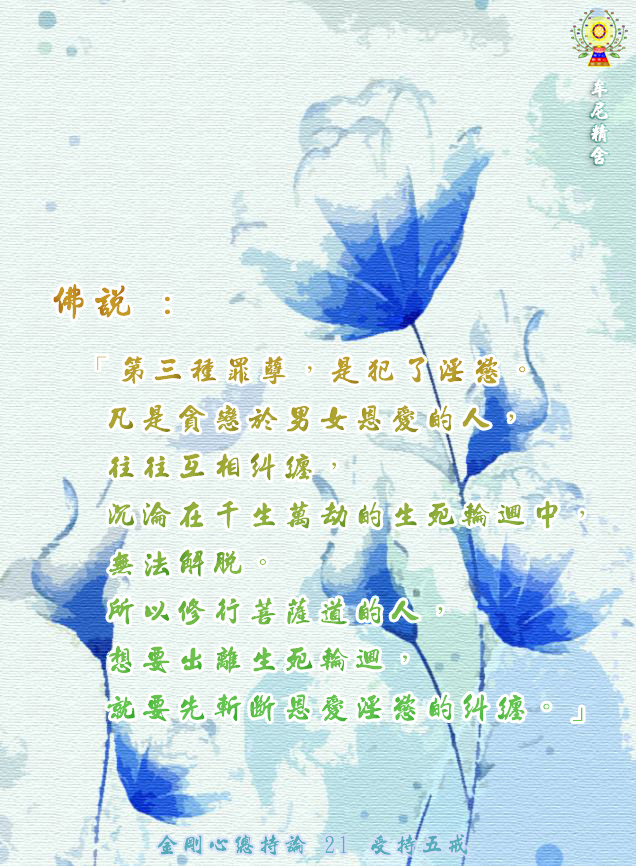 牟尼精舍
佛說：
「第三種罪孽，是犯了淫慾。
凡是貪戀於男女恩愛的人，
往往互相糾纏，
沉淪在千生萬劫的生死輪迴中，
無法解脱。
所以修行菩薩道的人，
想要出離生死輪迴，
就要先斬斷恩愛淫慾的糾纏。」
金剛心總持論 21 受持五戒